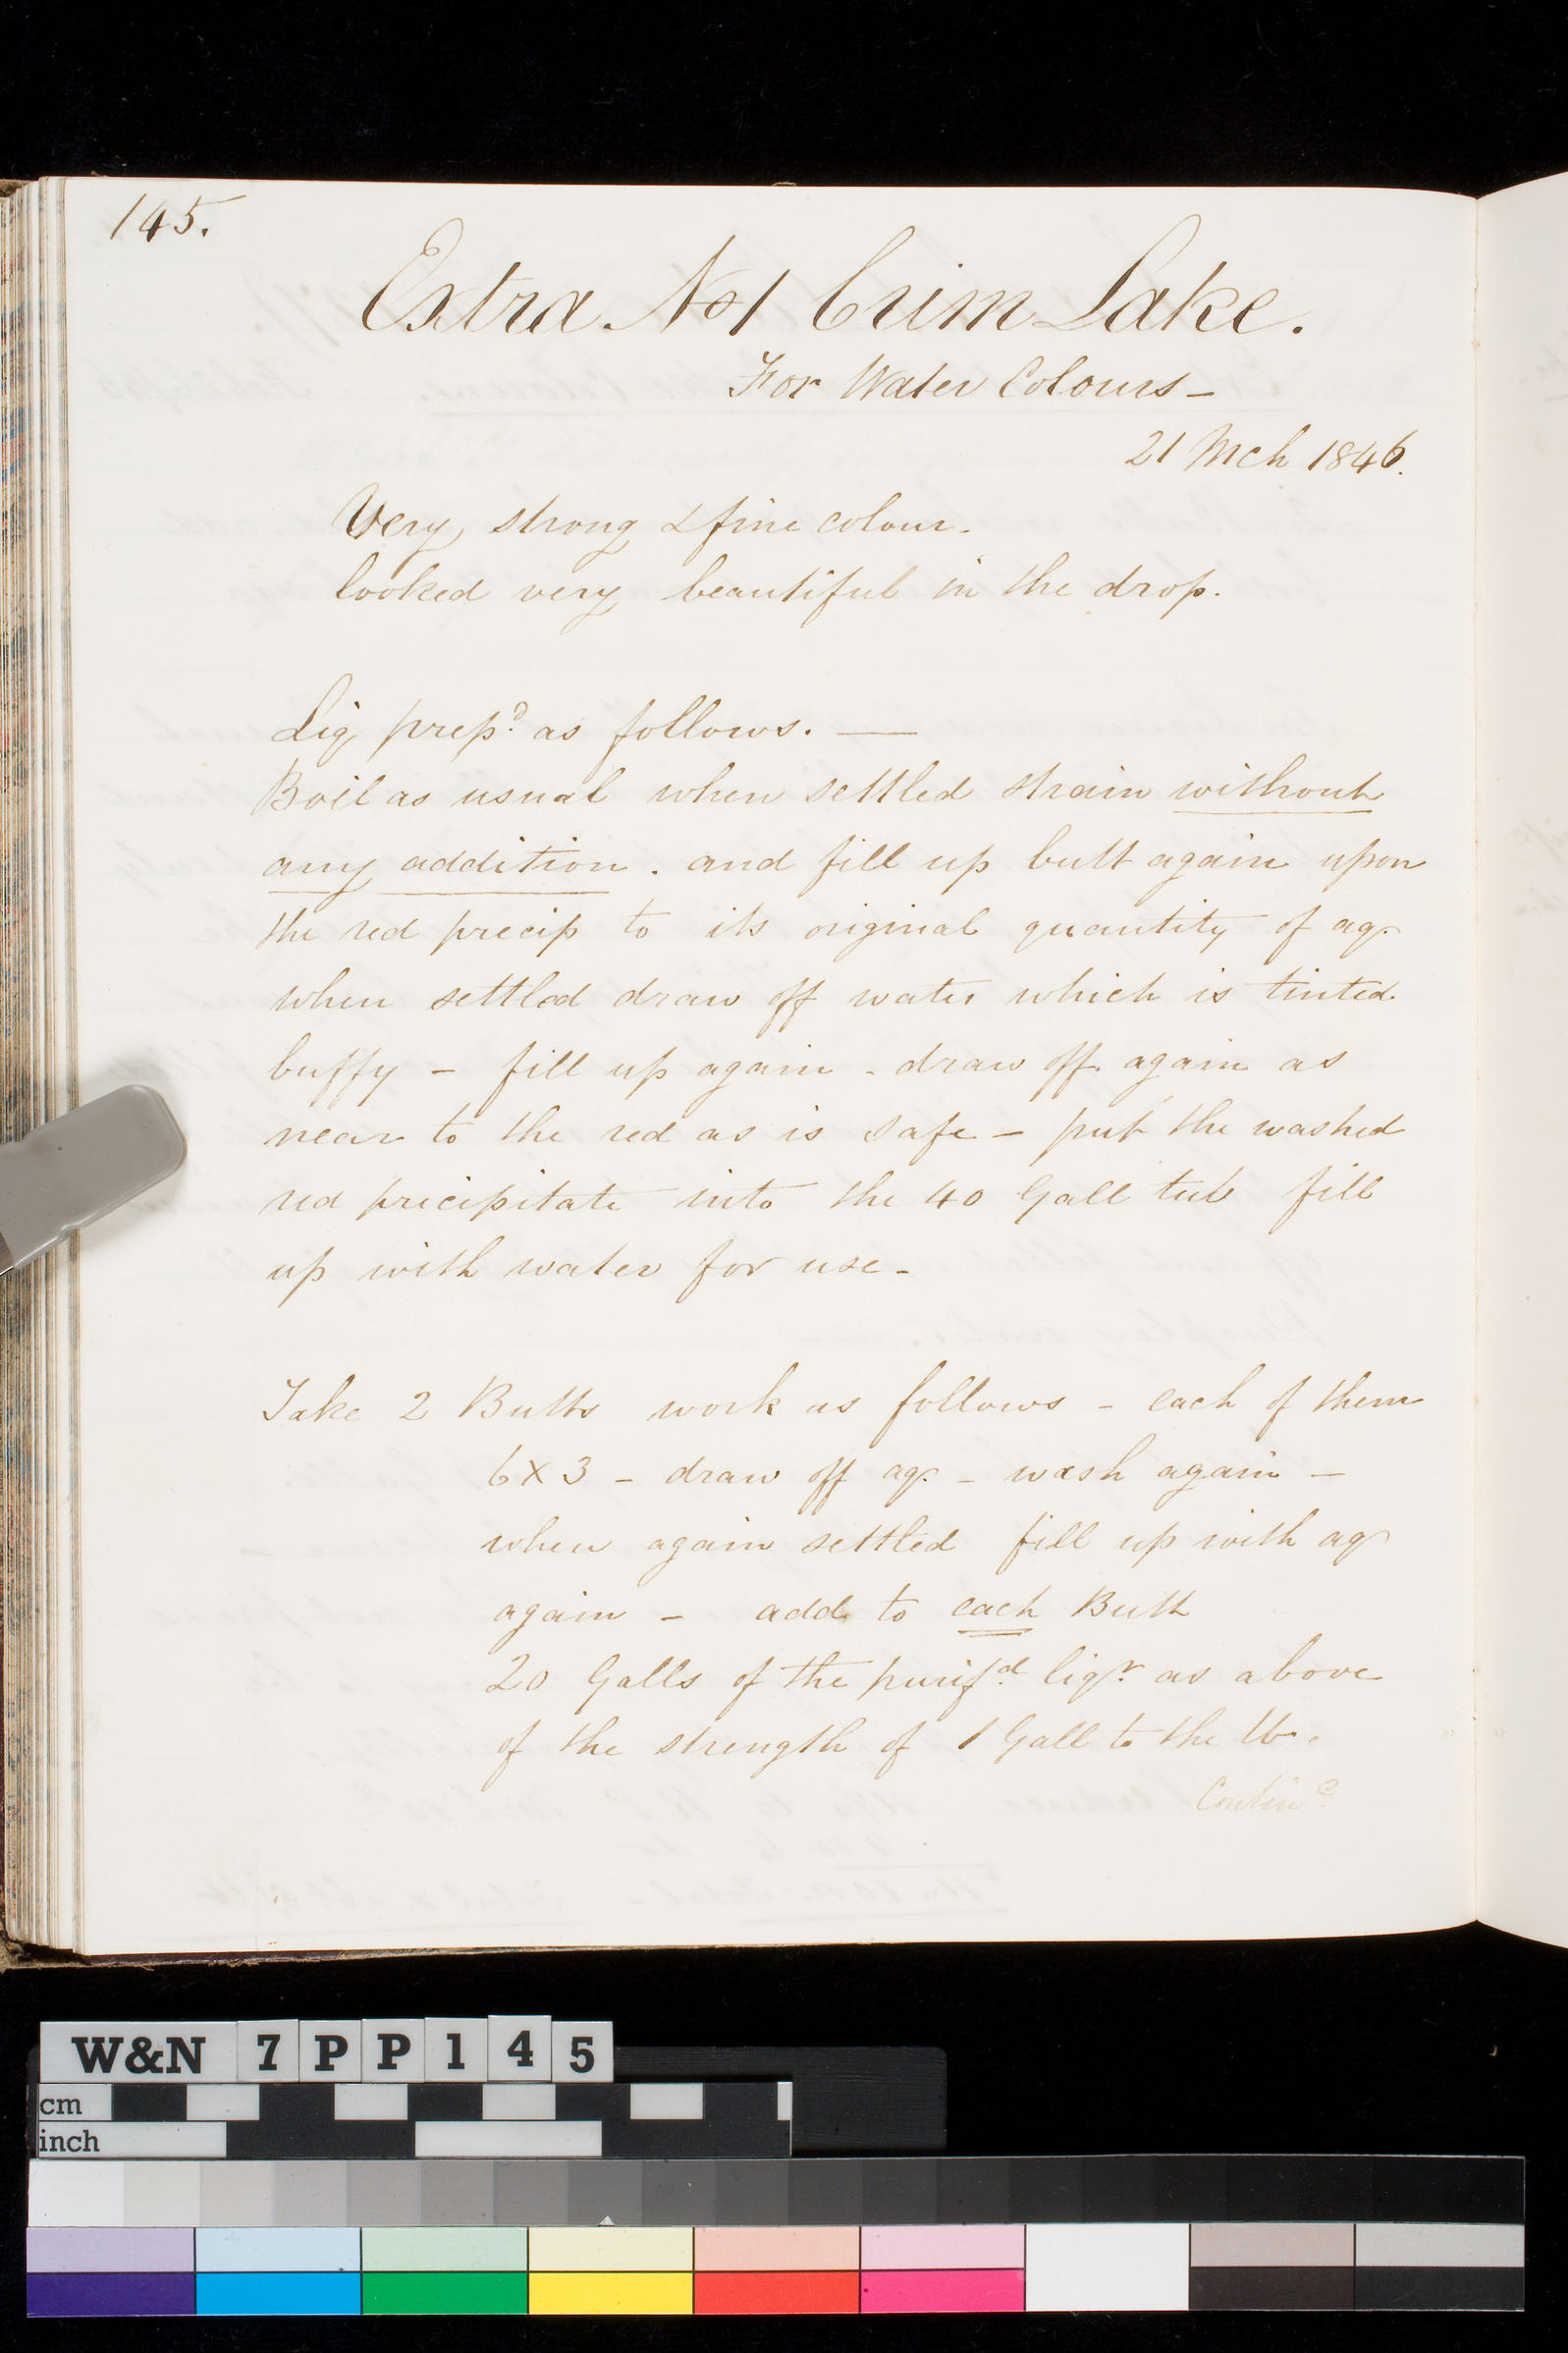 145.
Extra No1 Crim Lake.
For Water Colours -
21 Mch 1846.
Very strong & fine colour.
looked very beautiful in the drop.
Liq prepd. as follows. —
Boil as usual when settled strain without
any addition. and fill up butt again upon
the red precip to its original quantity of aq.
when settled draw off water which is tinted
buffy - fill up again - draw off again as
near to the red as is safe - put the washed
red precipitate into the 40 Gall tub fill
up with water for use -
Take 2 Butts work as follows - each of them
6 x 3 - draw off aq. - wash again -
when again settled fill up with aq
again - add to each Butt
20 Galls of the purifd. liqr. as above
of the strength of 1 Gall to the lb.
W&N 7PP145
cm
inch